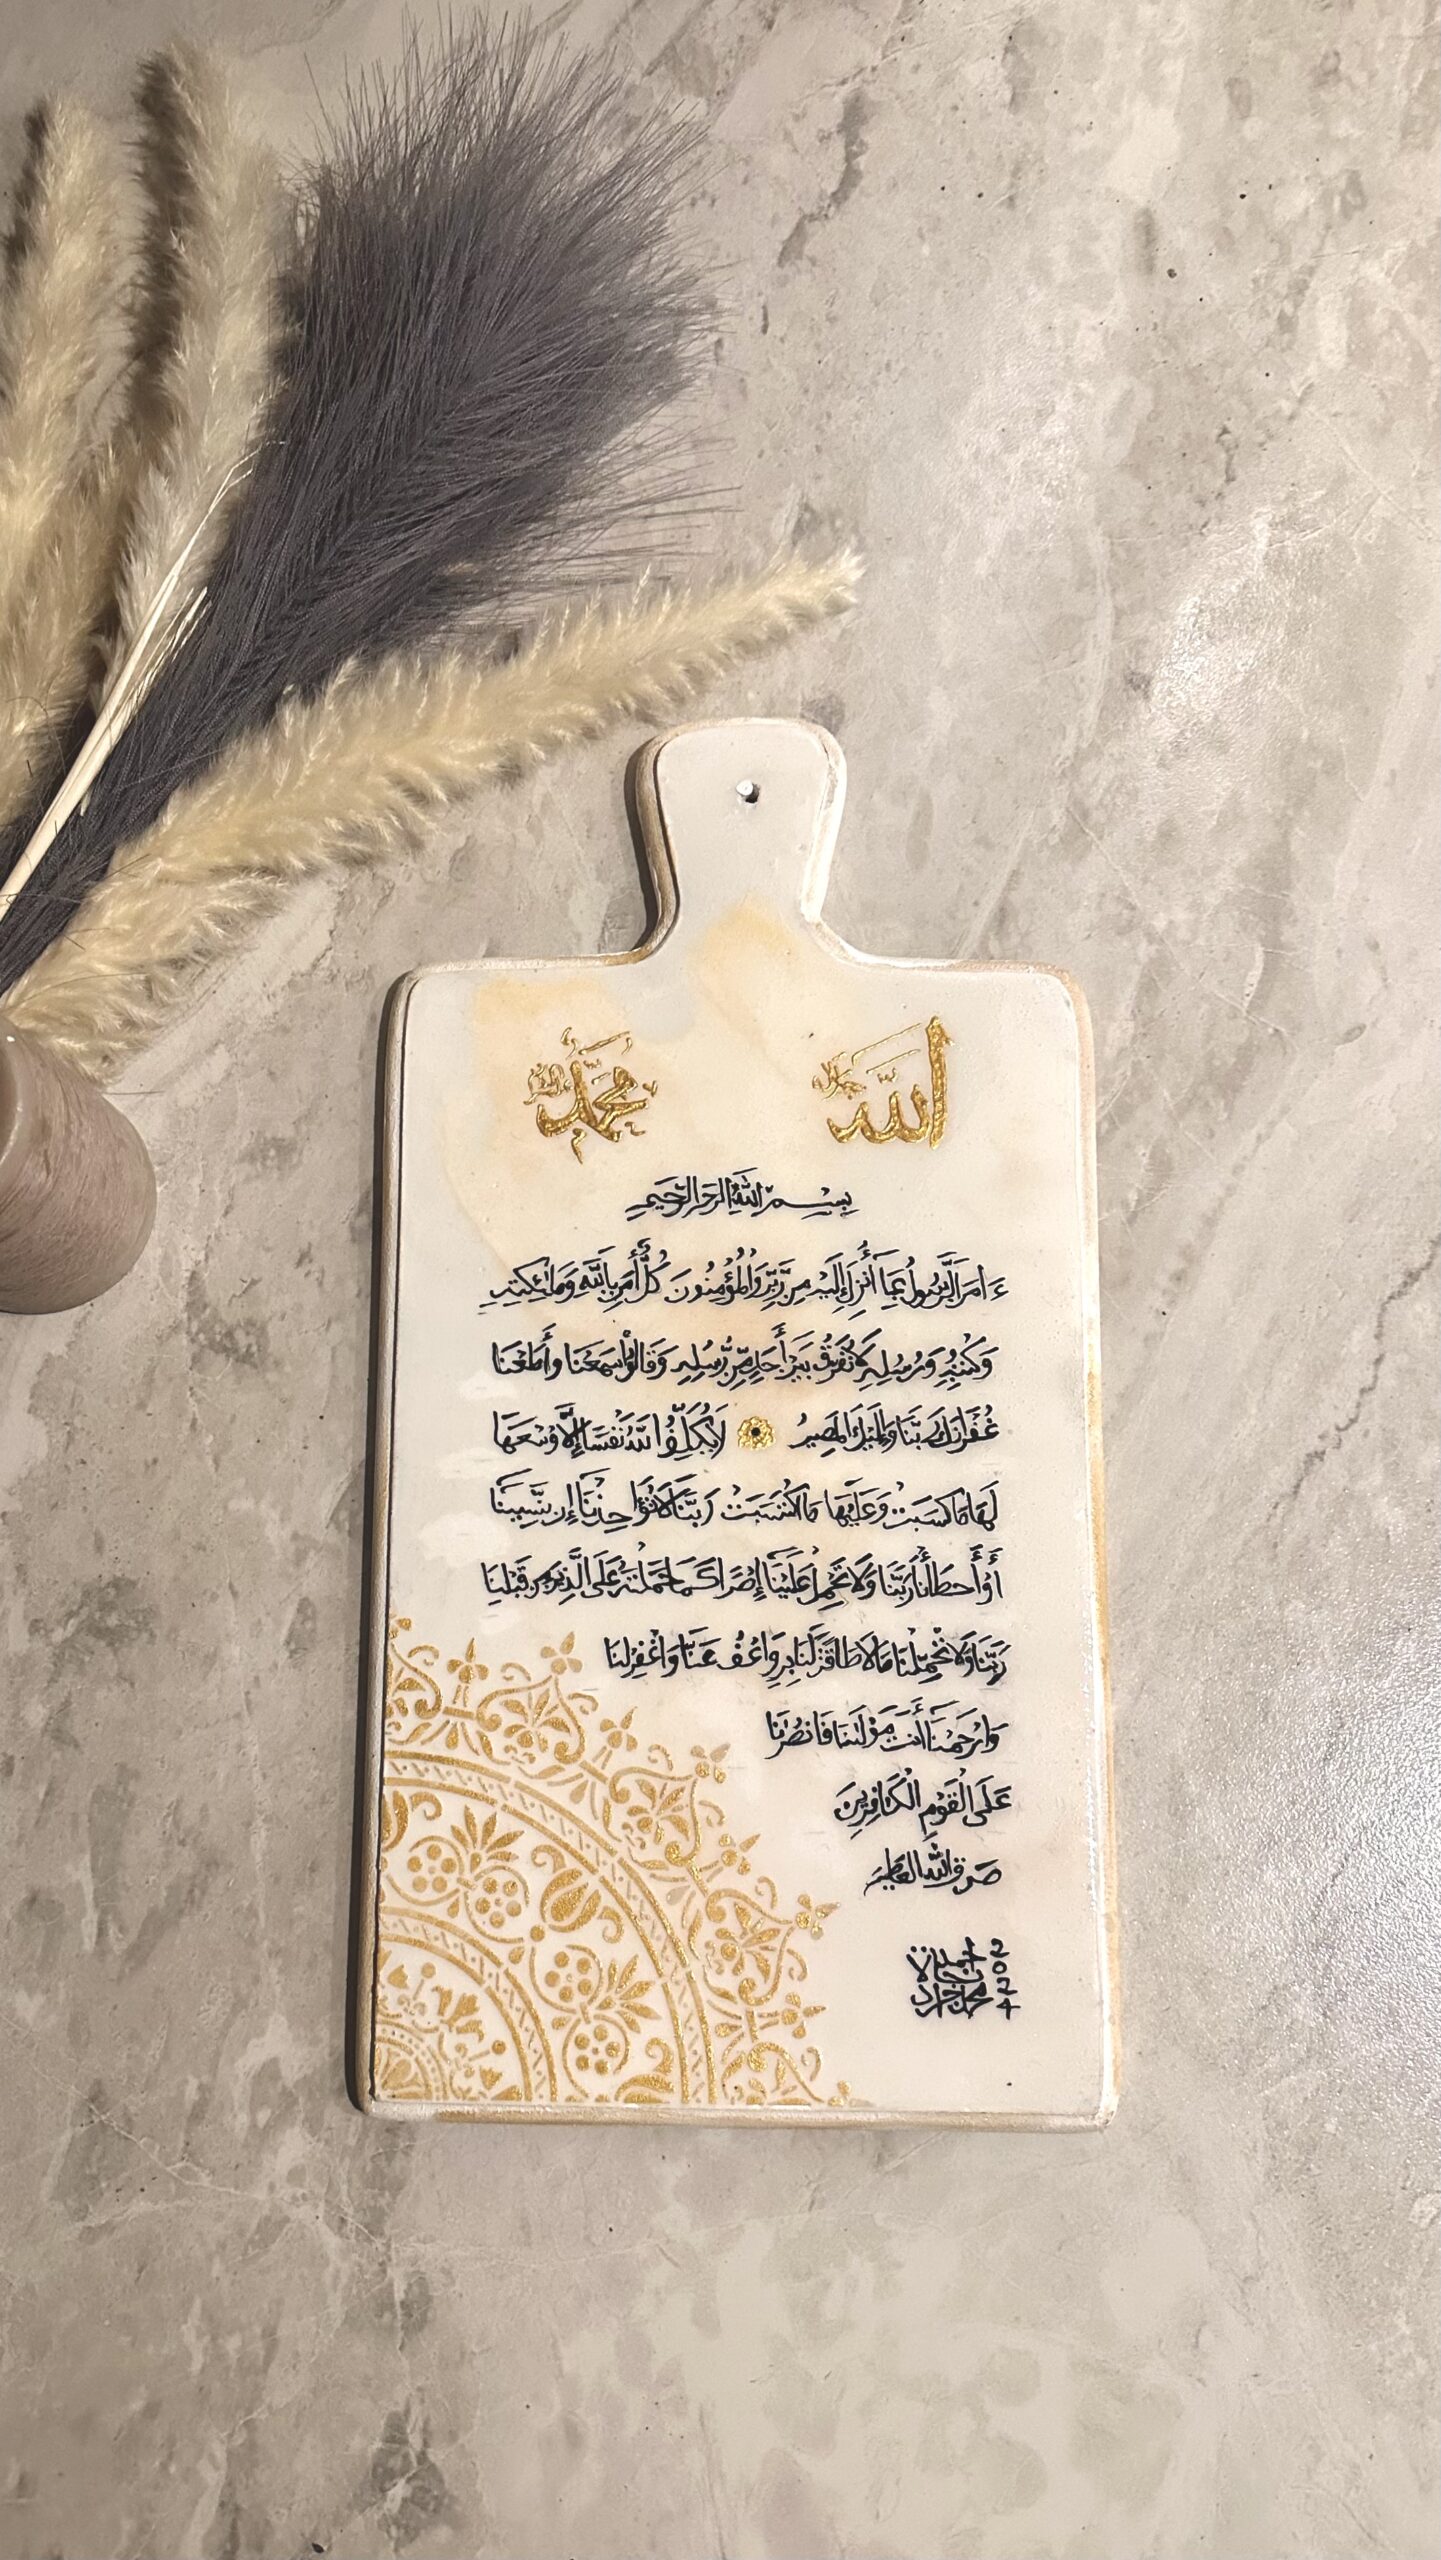 الله جل جلاله
محمد
بِسْمِ اللَّهِ الرَّحْمَٰنِ الرَّحِيمِ
ءَامَنَ الرَّسُولُ بِمَا أُنزِلَ إِلَيْهِ مِن رَّبِّهِ وَالْمُؤْمِنُونَ كُلٌّ أَمَنَ بِاللَّهِ وَمَلَٰئِكَتِهِ
وَكُتُبِهِ وَرُسُلِهِ لَا نُفَرِّقُ بَيْنَ أَحَدٍ مِّن رُّسُلِهِ وَقَالُوا سَمِعْنَا وَأَطَعْنَا
غُفْرَانَكَ رَبَّنَا وَإِلَيْكَ الْمَصِيرُ لَا يُكَلِّفُ اللَّهُ نَفْسًا إِلَّا وُسْعَهَا
لَهَا مَا كَسَبَتْ وَعَلَيْهَا مَا اكْتَسَبَتْ رَبَّنَا لَا تُؤَاخِذْنَا إِن نَّسِينَا
أَوْ أَخْطَأْنَا رَبَّنَا وَلَا تَحْمِلْ عَلَيْنَا إِصْرًا كَمَا حَمَلْتَهُ عَلَى الَّذِينَ مِن قَبْلِنَا
رَبَّنَا وَلَا تُحَمِّلْنَا مَا لَا طَاقَةَ لَنَا بِهِ وَاعْفُ عَنَّا وَاغْفِرْ لَنَا
وَارْحَمْنَا أَنتَ مَوْلَىٰنَا فَانصُرْنَا
عَلَى الْقَوْمِ الْكَافِرِينَ
صدق الله العظيم
2024